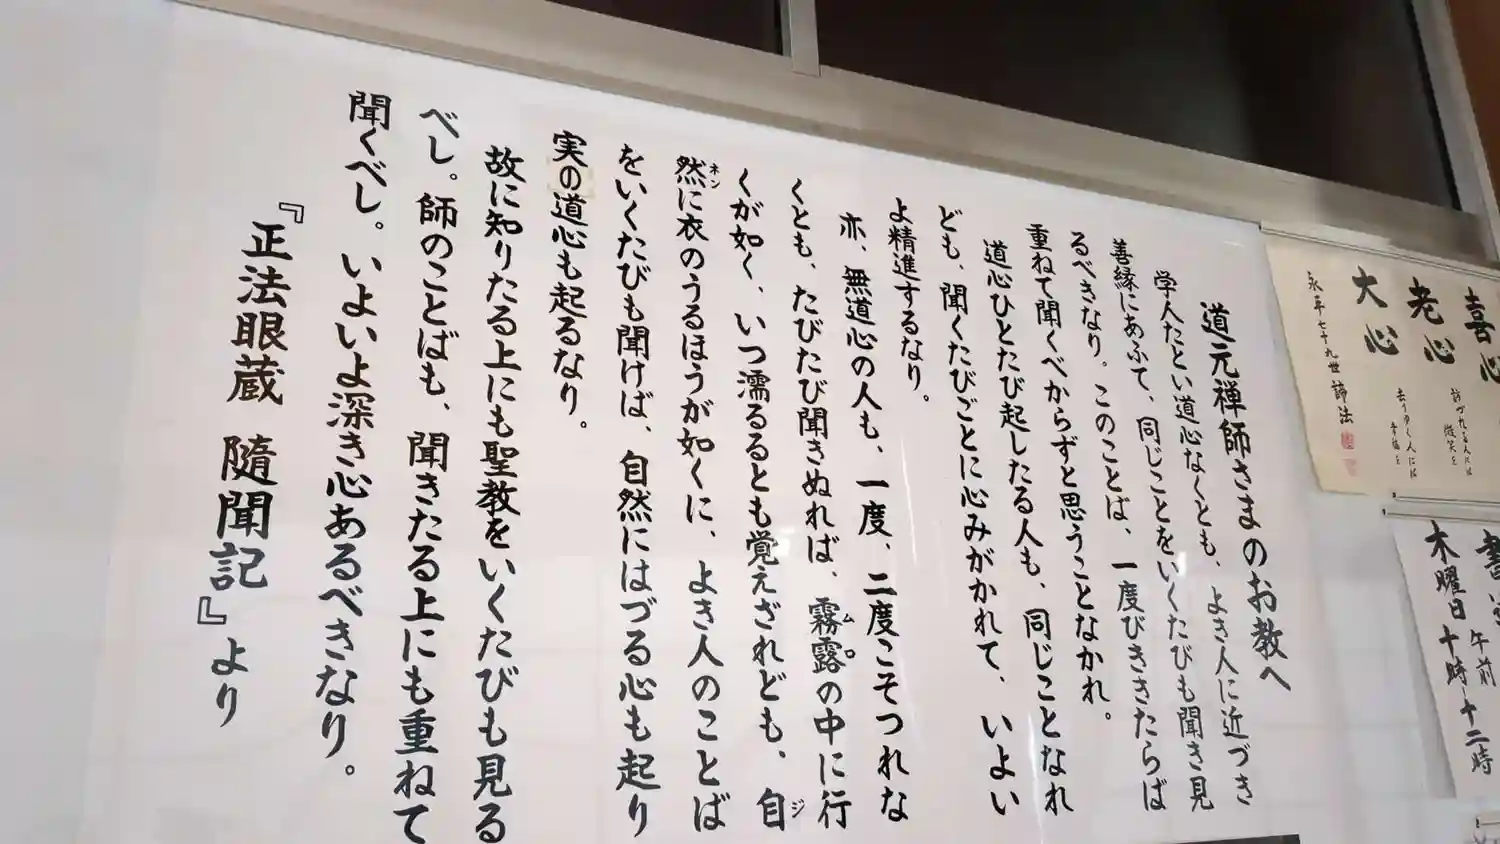 道元禅師さまのお教へ
学人たとい道心なくとも、よき人に近づき
善縁にあふて、同じことをいくたびも聞き見
るべきなり。このことば、一度びききたらば
重ねて聞くべからずと思うことなかれ。
道心ひとたび起したる人も、同じことなれ
ども、聞くたびごとに心みがかれて、いよい
よ精進するなり。
亦、無道心の人も、一度、二度こそつれな
くとも、たびたび聞きぬれば、霧露の中に行
ムロ
くが如く、いつ濡るるとも覚えざれども、自
ジ
然に衣のうるほうが如くに、よき人のことば
ネン
をいくたびも聞けば、自然にはづる心も起り
実の道心も起るなり。
故に知りたる上にも聖教をいくたびも見る
べし。師のことばも、聞きたる上にも重ねて
聞くべし。いよいよ深き心あるべきなり。
『正法眼蔵 随聞記』より
喜心
訪づれる人には
微笑を
老心
去りゆく人には
幸福を
大心
永平七十九世 諦法
午前
木曜日 十時-十二時